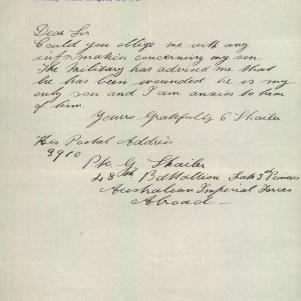 Dear Sir
Could you oblige me with any
information concerning my son.
The Military has advised me that
he has been wounded he is my
only son and I am anxious to hear
of him.
Yours Gratefully C Shailer
His Postal Address
3910
Pte G Shailer
48th Battallion Late 3rd Pioneers
Australian Imperial Forces
Abroad